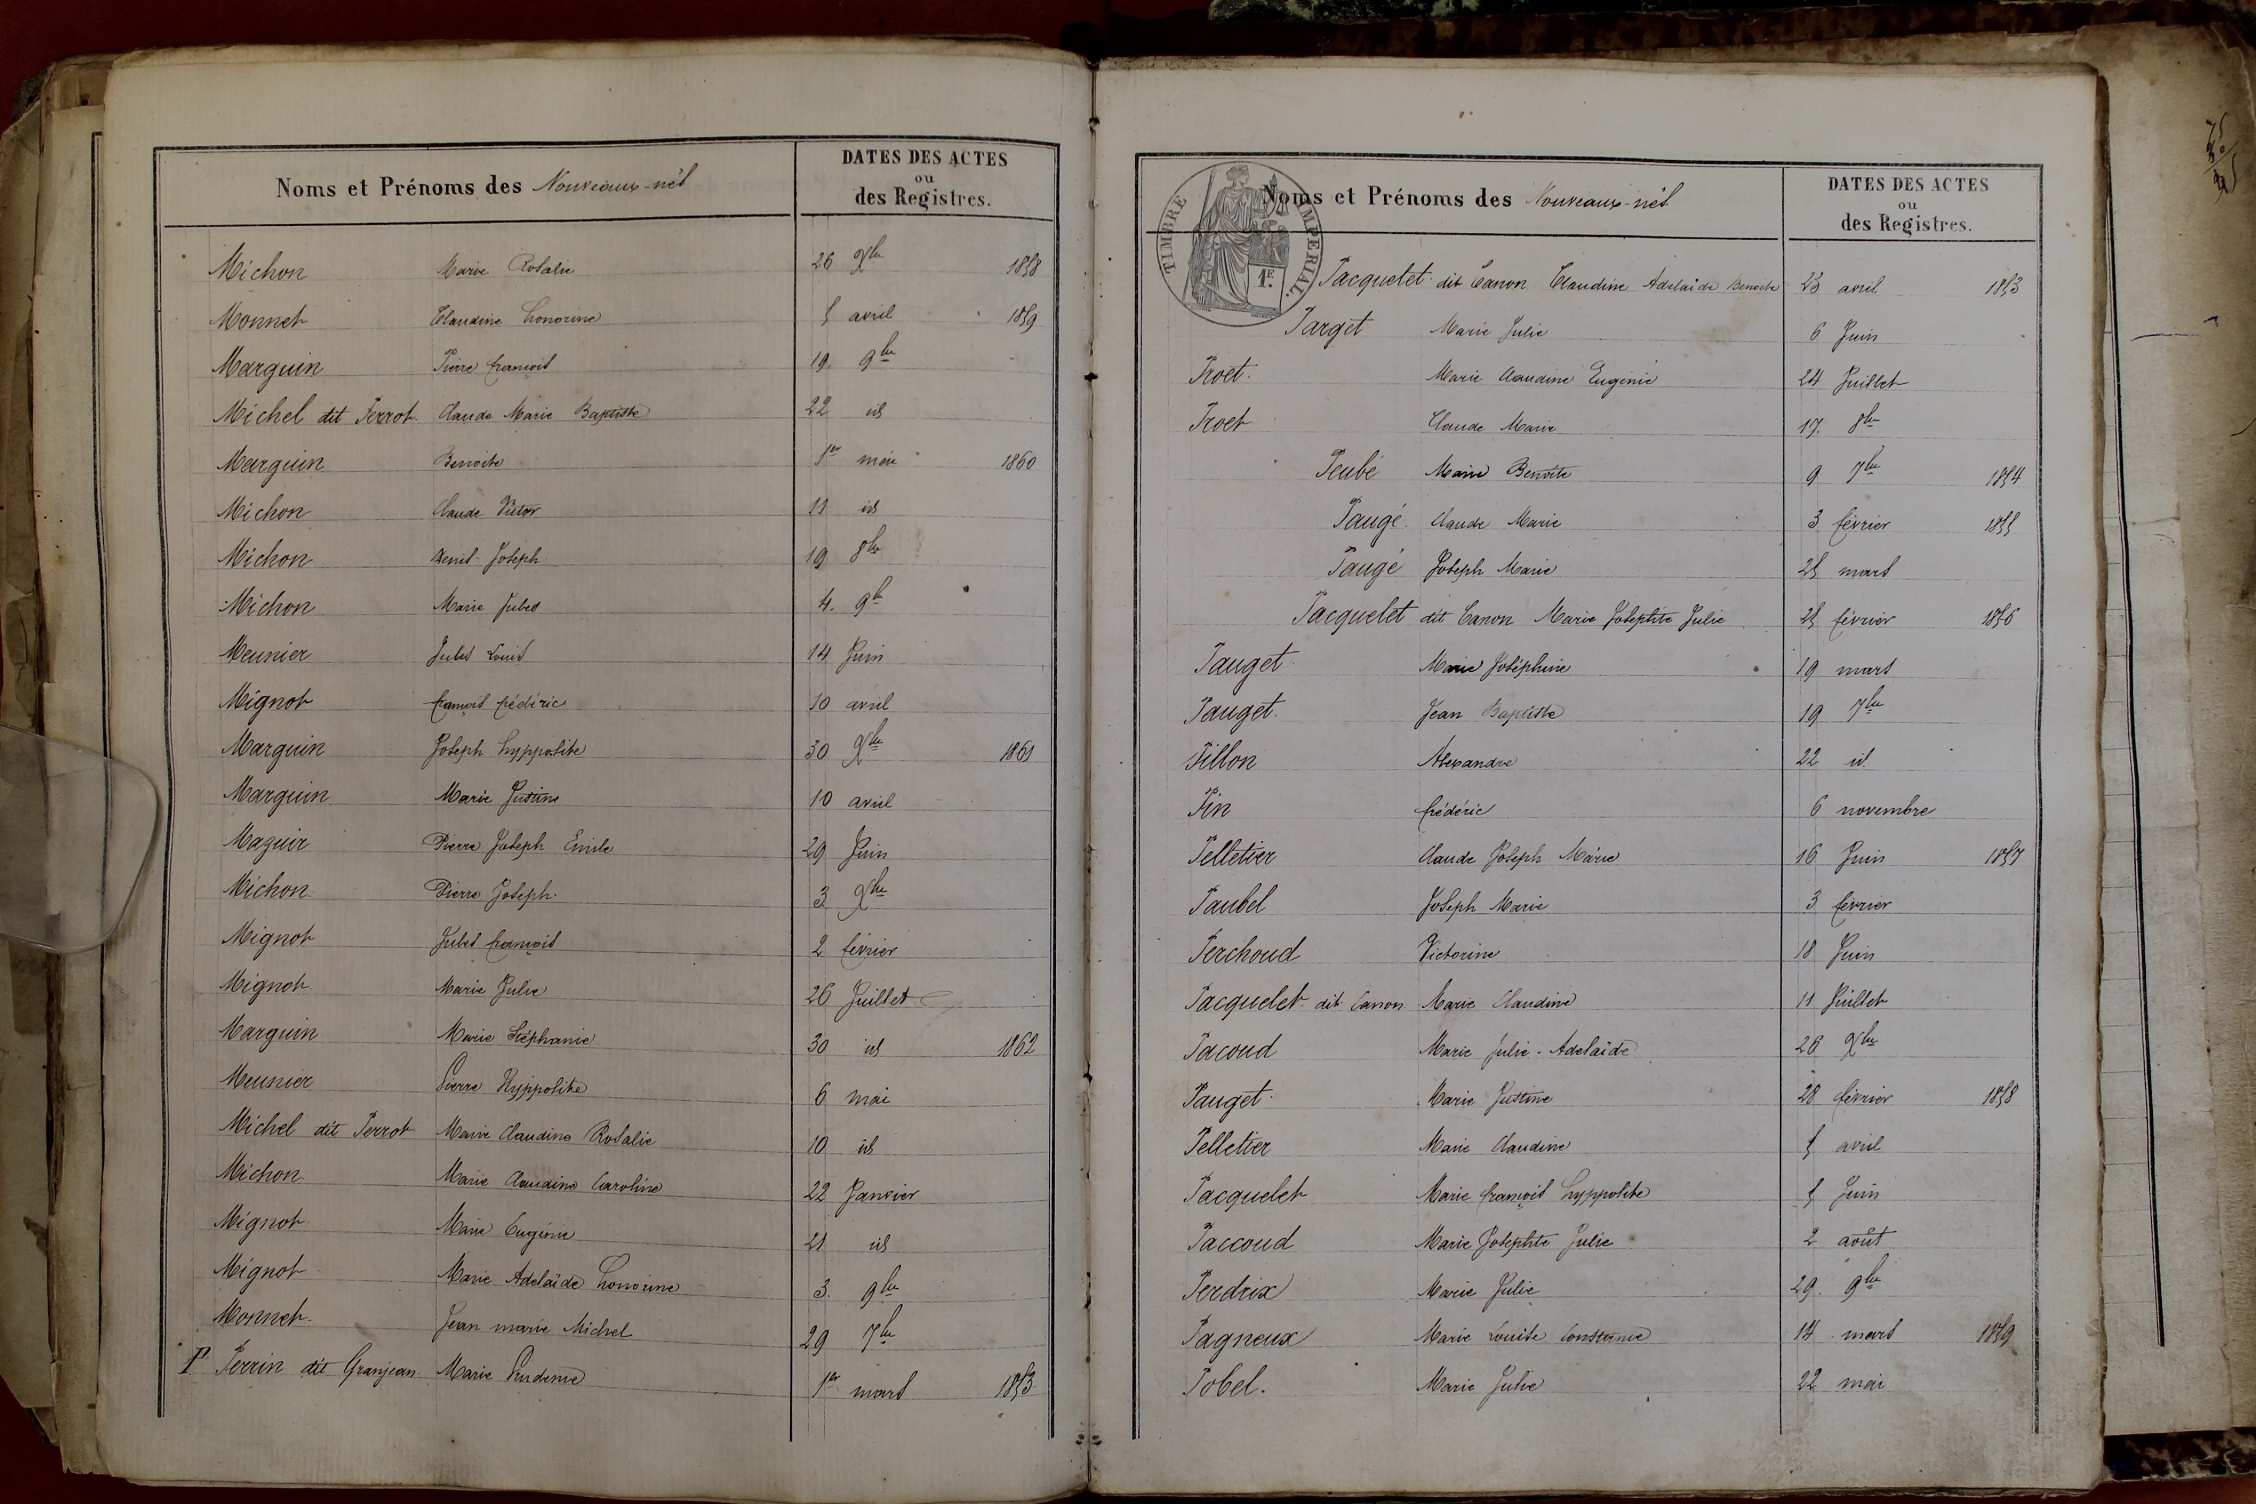 Noms et Prénoms des Nouveaux-nés
DATES DES ACTES
ou
des Registres.
Michon Marie Rosalie 26 Xbre 1858
Monnet Claudine honorine 5 avril 1859
Marguin Pierre françois 19. 9bre
Michel dit Perrot Claude Marie Baptiste 22 id
Marguin Benoite 1er mai 1860
Michon Claude Victor 11 id
Michon Denis Joseph 19 8bre
Michon Marie Jules 4. 9b
Meunier Jules Louis 14 Juin
Mignot françois frédéric 10 avril
Marguin Joseph hyppolite 30 Xbre 1861
Marguin Marie Justine 10 avril
Maguir Pierre Joseph Emile 29 Juin
Michon Pierre Joseph 3 Xbre
Mignot Jules françois 2 février
Mignot Marie Julie 26 Juillet
Marguin Marie Stéphanie 30 id 1862
Meunier Pierre Hyppolite 6 mai
Michel dit Perrot Marie Claudine Rosalie 10 id
Michon Marie Claudine Caroline 22 Janvier
Mignot Marie Eugénie 21 id
Mignot Marie Adelaïde honorine 3. 9bre
Monnet Jean marie Michel 29 7bre
P Perrin dit Granjean Marie Prudence 1er mars 1853
TIMBRE IMPERIAL.
1E.
Noms et Prénoms des Nouveaux-nés
DATES DES ACTES
ou
des Registres.
Pacquelet dit Canon Claudine Adelaïde Benoite 23 avril 1853
Parget Marie Julie 6 Juin
Proet Marie Claudine Eugénie 24 Juillet
Proet Claude Marie 17. 8bre
Peubé Marie Benoite 9 7bre 1854
Paugé Claude Marie 3 février 1855
Paugé Joseph Marie 25 mars
Pacquelet dit Canon Marie Josephte Julie 25 février 1856
Pauget Marie Joséphine 19 mars
Pauget Jean Baptiste 19 7bre
Pillon Alexandre 22 id
Pin frédéric 6 novembre
Pelletier Claude Joseph Marie 16 Juin 1857
Paubel Joseph Marie 3 février
Perchoud Victorine 18 Juin
Pacquelet dit Canon Marie Claudine 11 Juillet
Pacoud Marie Julie-Adelaïde 26 Xbre
Pauget Marie Justine 28 février 1858
Pelletier Marie Claudine 5 avril
Pacquelet Marie françois hyppolite 5 Juin
Paccoud Marie Josephte Julie 2 août
Perdrix Marie Julie 29. 9bre
Pagneux Marie Louise Constance 14 mars 1859
Pobel. Marie Julie 22 mai